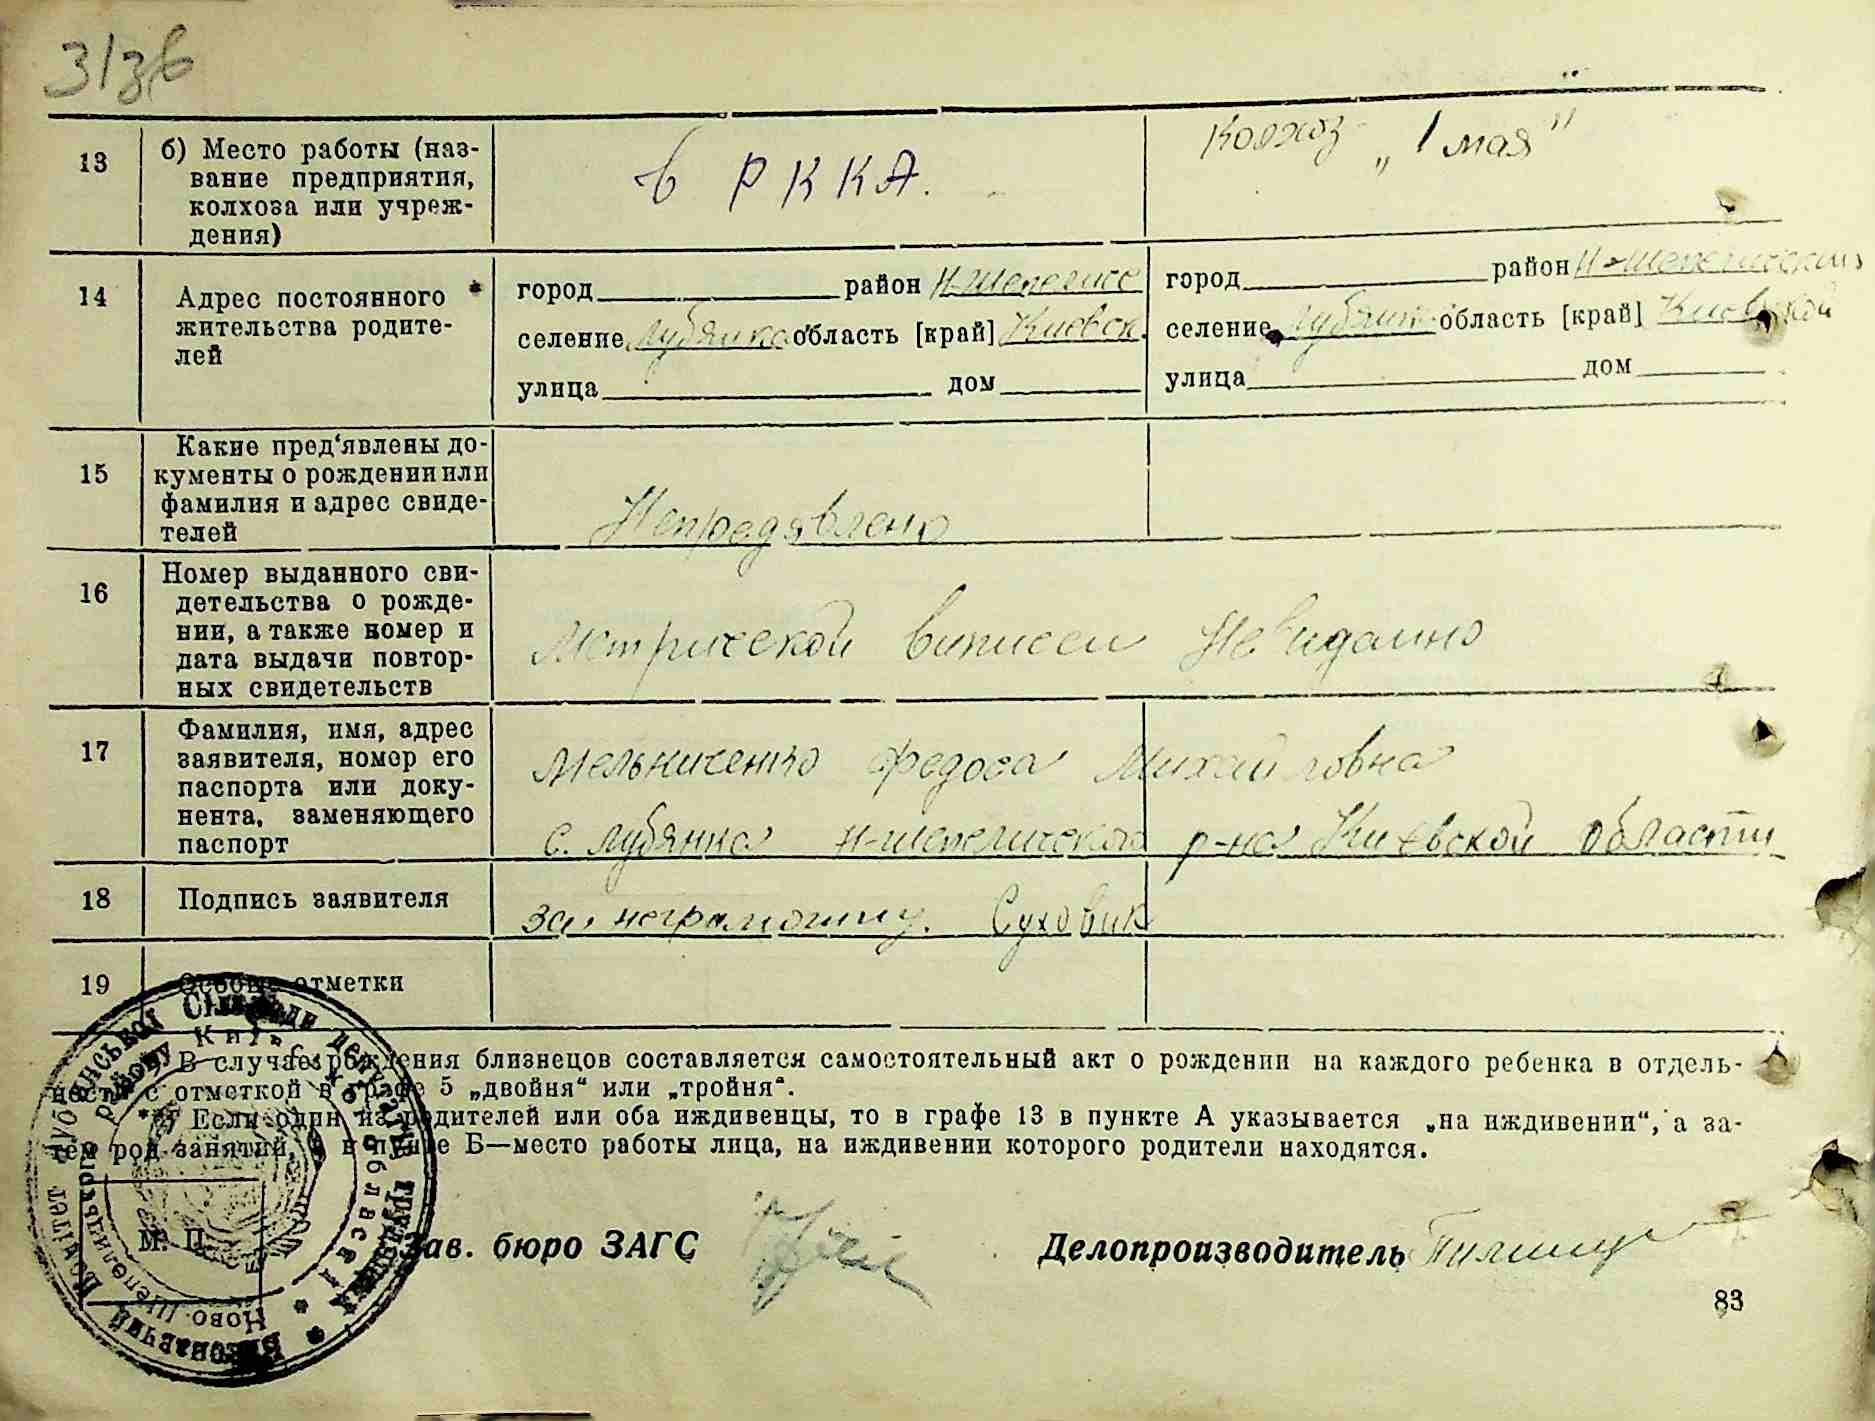 313б
13
б) Место работы (наз-
вание предприятия,
колхоза или учреж-
дения)
в РККА.
колхоз „1 мая"
14
Адрес постоянного
жительства родите-
лей
город район Н-Шепелис
селение Лубянка область [край] Киевск.
улица дом
город район Н-Шепелический
селение Лубянка область [край] Киевской
улица дом
15
Какие пред'явлены до-
кументы о рождении или
фамилия и адрес свиде-
телей
Непредявлено
16
Номер выданного сви-
детельства о рожде-
нии, а также номер и
дата выдачи повтор-
ных свидетельств
Метрической виписки Невиданно
17
Фамилия, имя, адрес
заявителя, номер его
паспорта или доку-
нента, заменяющего
паспорт
Мельниченко Федоса Михайловна
с. Лубянка Н-Шепелического р-на Киевской области
18
Подпись заявителя
за неграмотну. Суховик
19
Особые отметки
В случае рождения близнецов составляется самостоятельный акт о рождении на каждого ребенка в отдель-
ности с отметкой в графе 5 „двойня" или „тройня".
**) Если один из родителей или оба иждивенцы, то в графе 13 в пункте А указывается „на иждивении", а за-
тем род занятий, а в пункте Б—место работы лица, на иждивении которого родители находятся.
М. П.
Зав. бюро ЗАГС
Делопроизводитель
83
Виконавчий Комітет Лубянської Сільради депутатів трудящих
Ново-Шепелицького району Київської області